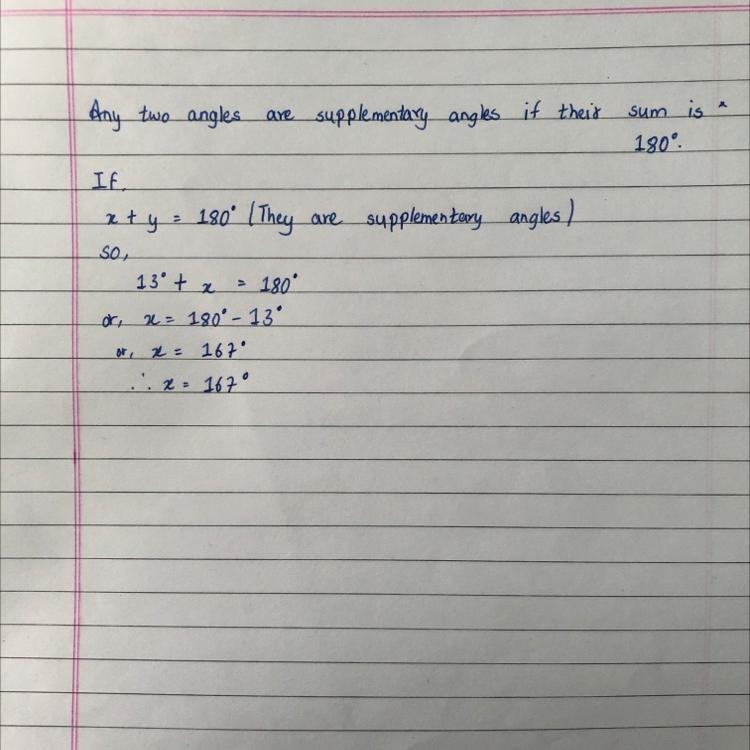 Any two angles are supplementary angles if their sum is
180°.
If,
x + y = 180° (They are supplementary angles)
so,
13° + x = 180°
or, x = 180° - 13°
or, x = 167°
∴ x = 167°